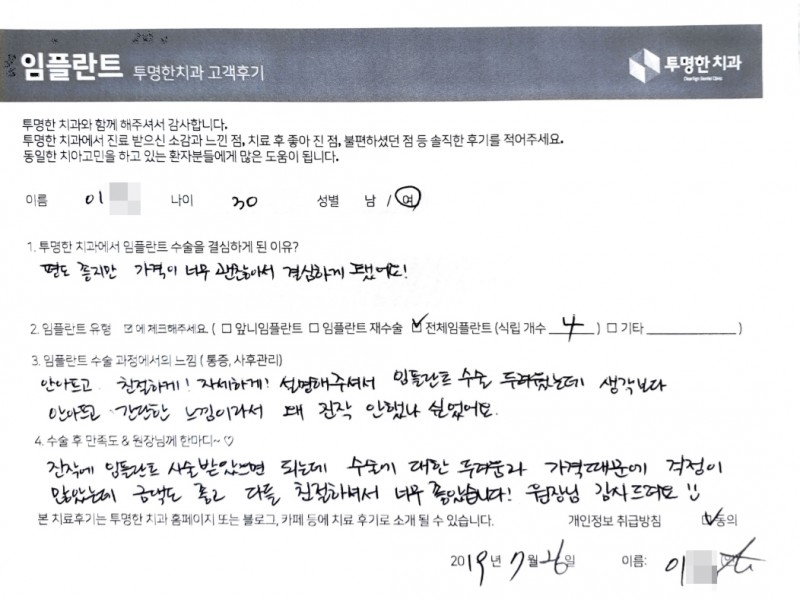 임플란트 투명한치과 고객후기
투명한 치과
투명한 치과와 함께 해주셔서 감사합니다.
투명한 치과에서 진료 받으신 소감과 느낀 점, 치료 후 좋아 진 점, 불편하셨던 점 등 솔직한 후기를 적어주세요.
동일한 치아고민을 하고 있는 환자분들에게 많은 도움이 됩니다.
이름 이 나이 30 성별 남 / 여
1. 투명한 치과에서 임플란트 수술을 결심하게 된 이유?
평도 좋지만 가격이 너무 괜찮아서 결심하게 됐어요!
2. 임플란트 유형 ☑에 체크해주세요. ( ☐ 앞니임플란트 ☐ 임플란트 재수술 ☑ 전체임플란트 (식립 개수 4 ) ☐ 기타 )
3. 임플란트 수술 과정에서의 느낌 ( 통증, 사후관리)
안아프고 친절하게! 자세하게! 설명해주셔서 임플란트 수술 두려웠는데 생각보다
안아프고 간단한 느낌이라서 왜 진작 안했나 싶었어요.
4. 수술 후 만족도 & 원장님께 한마디~ ♡
진작에 임플란트 시술받았으면 되는데 수술에 대한 두려움과 가격때문에 걱정이
많았는데 금액도 좋고 다들 친절하셔서 너무 좋았습니다! 원장님 감사드려요
본 치료후기는 투명한 치과 홈페이지 또는 블로그, 카페 등에 치료 후기로 소개 될 수 있습니다. 개인정보 취급방침 ☑ 동의
2019 년 7 월 26 일 이름: 이